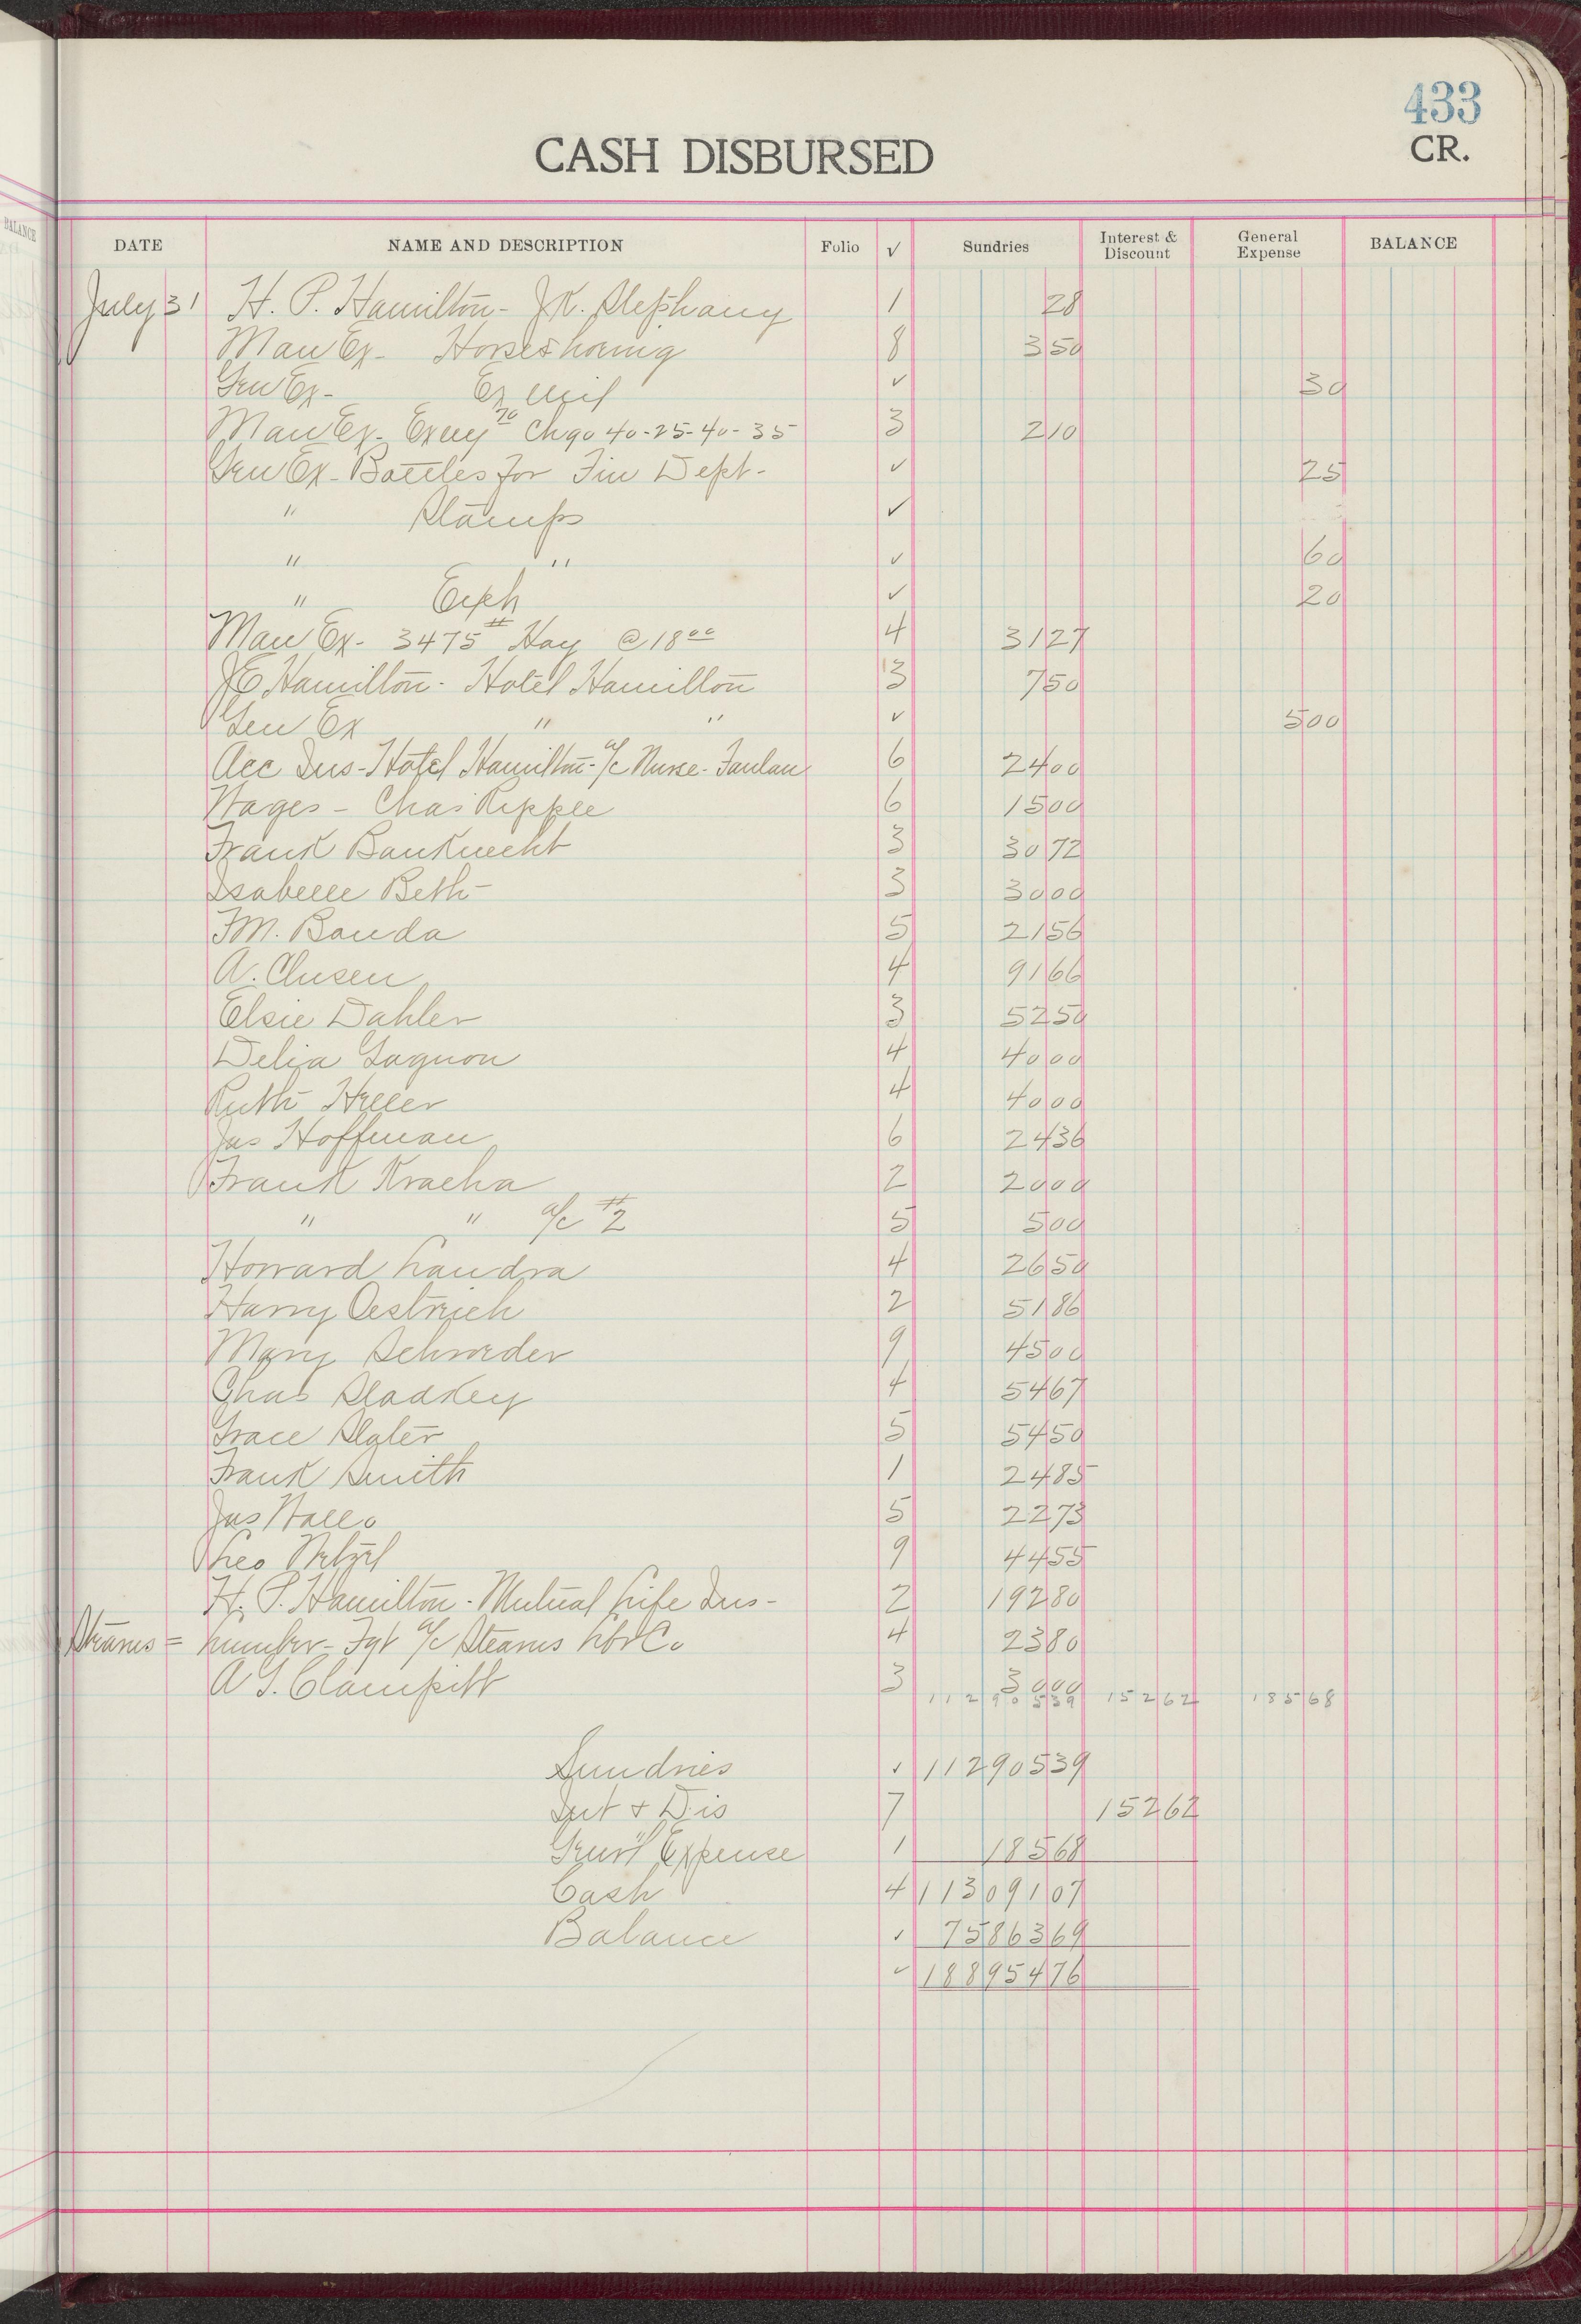 433
CASH DISBURSED
CR.
BALANCE
DATE NAME AND DESCRIPTION Folio ✓ Sundries Interest & Discount General Expense BALANCE
July 31 H. P. Hamilton - J K. Stephany 1 28
Man Ex - Horseshoeing 8 350
Gen Ex - Ex ✓ 30
Man Ex - Chgo 40-25-40-35 3 210
Gen Ex - Bottles for Fin Dept - ✓ 25
" Stamps ✓
" " ✓ 60
" Exch ✓ 20
Man Ex - 3475# Hay @ 18 00 4 3127
J E Hamilton - Hotel Hamilton 13 750
Gen Ex " " ✓ 500
Acc Ins - Hotel Hamilton - a/c Nurse - 6 2400
Wages - Chas Ripple 6 1500
Frank Bauknecht 3 3072
Isabelle Beth - 3 3000
F M. Bouda 5 2156
A. Clusen 4 9166
Elsie Dahler 3 5250
Delia Gagnon 4 4000
Ruth Heller 4 4000
Jas Hoffman 6 2436
Frank Kracha 2 2000
" " a/c #2 5 500
Howard Landra 4 2650
Harry Oestreich 2 5186
Mary Schroeder 9 4500
Chas Sladkey 4 5467
Grace Slater 5 5450
Frank Smith 1 2485
Jas Wall. 5 2273
Leo Wetzel 9 4455
H. P. Hamilton - Mutual Life Ins - 2 19280
Stearns = Lumber - Fgt a/c Stearns Lbr Co 4 2380
A G. Clampitt 3 3000
11290539 15262 18568
Sundries ✓ 11290539
Int + Dis 7 15262
Genrl Expense 1 18568
Cash 4 11309107
Balance ✓ 7586369
✓ 18895476